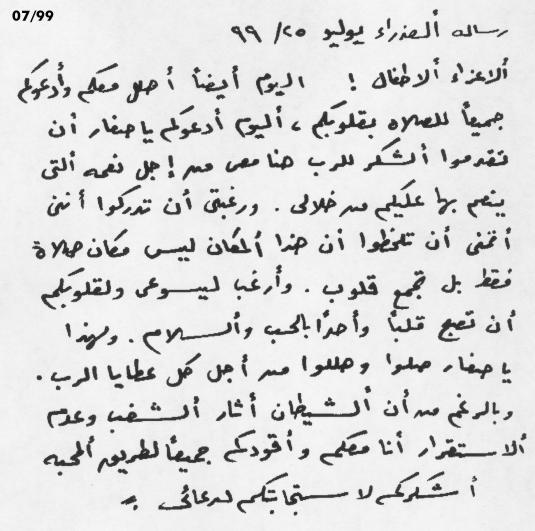 07/99
رساله ألعذراء يوليو ٢٥/ ٩٩
ألاعزاء ألاطفال ! اليوم أيضاً أصلي معكم وأدعوكم
جميعاً للصلاه بقلوبكم ، أليوم أدعوكم يا صغار أن
تقدموا ألشكر للرب هنا معي من إجل نعمه ألتى
ينعم بها عليكم من خلالى . ورغبتى أن تدركوا أننى
أتمنى أن تلحظوا أن هذا ألمكان ليس مكان صلاة
فقط بل تجمع قلوب . وأرغب ليسوعى ولقلوبكم
أن تصبح قلباً وأحدًا بالحب وألسلام . ولهذا
يا صغار صلوا وهللوا من أجل كل عطايا الرب .
وبالرغم من أن ألشيطان أثار ألشغب وعدم
ألاستقرار أنا معكم وأقودكم جميعاً لطريق ألمحبه
أشكركم لاستجابتكم لدعائى .